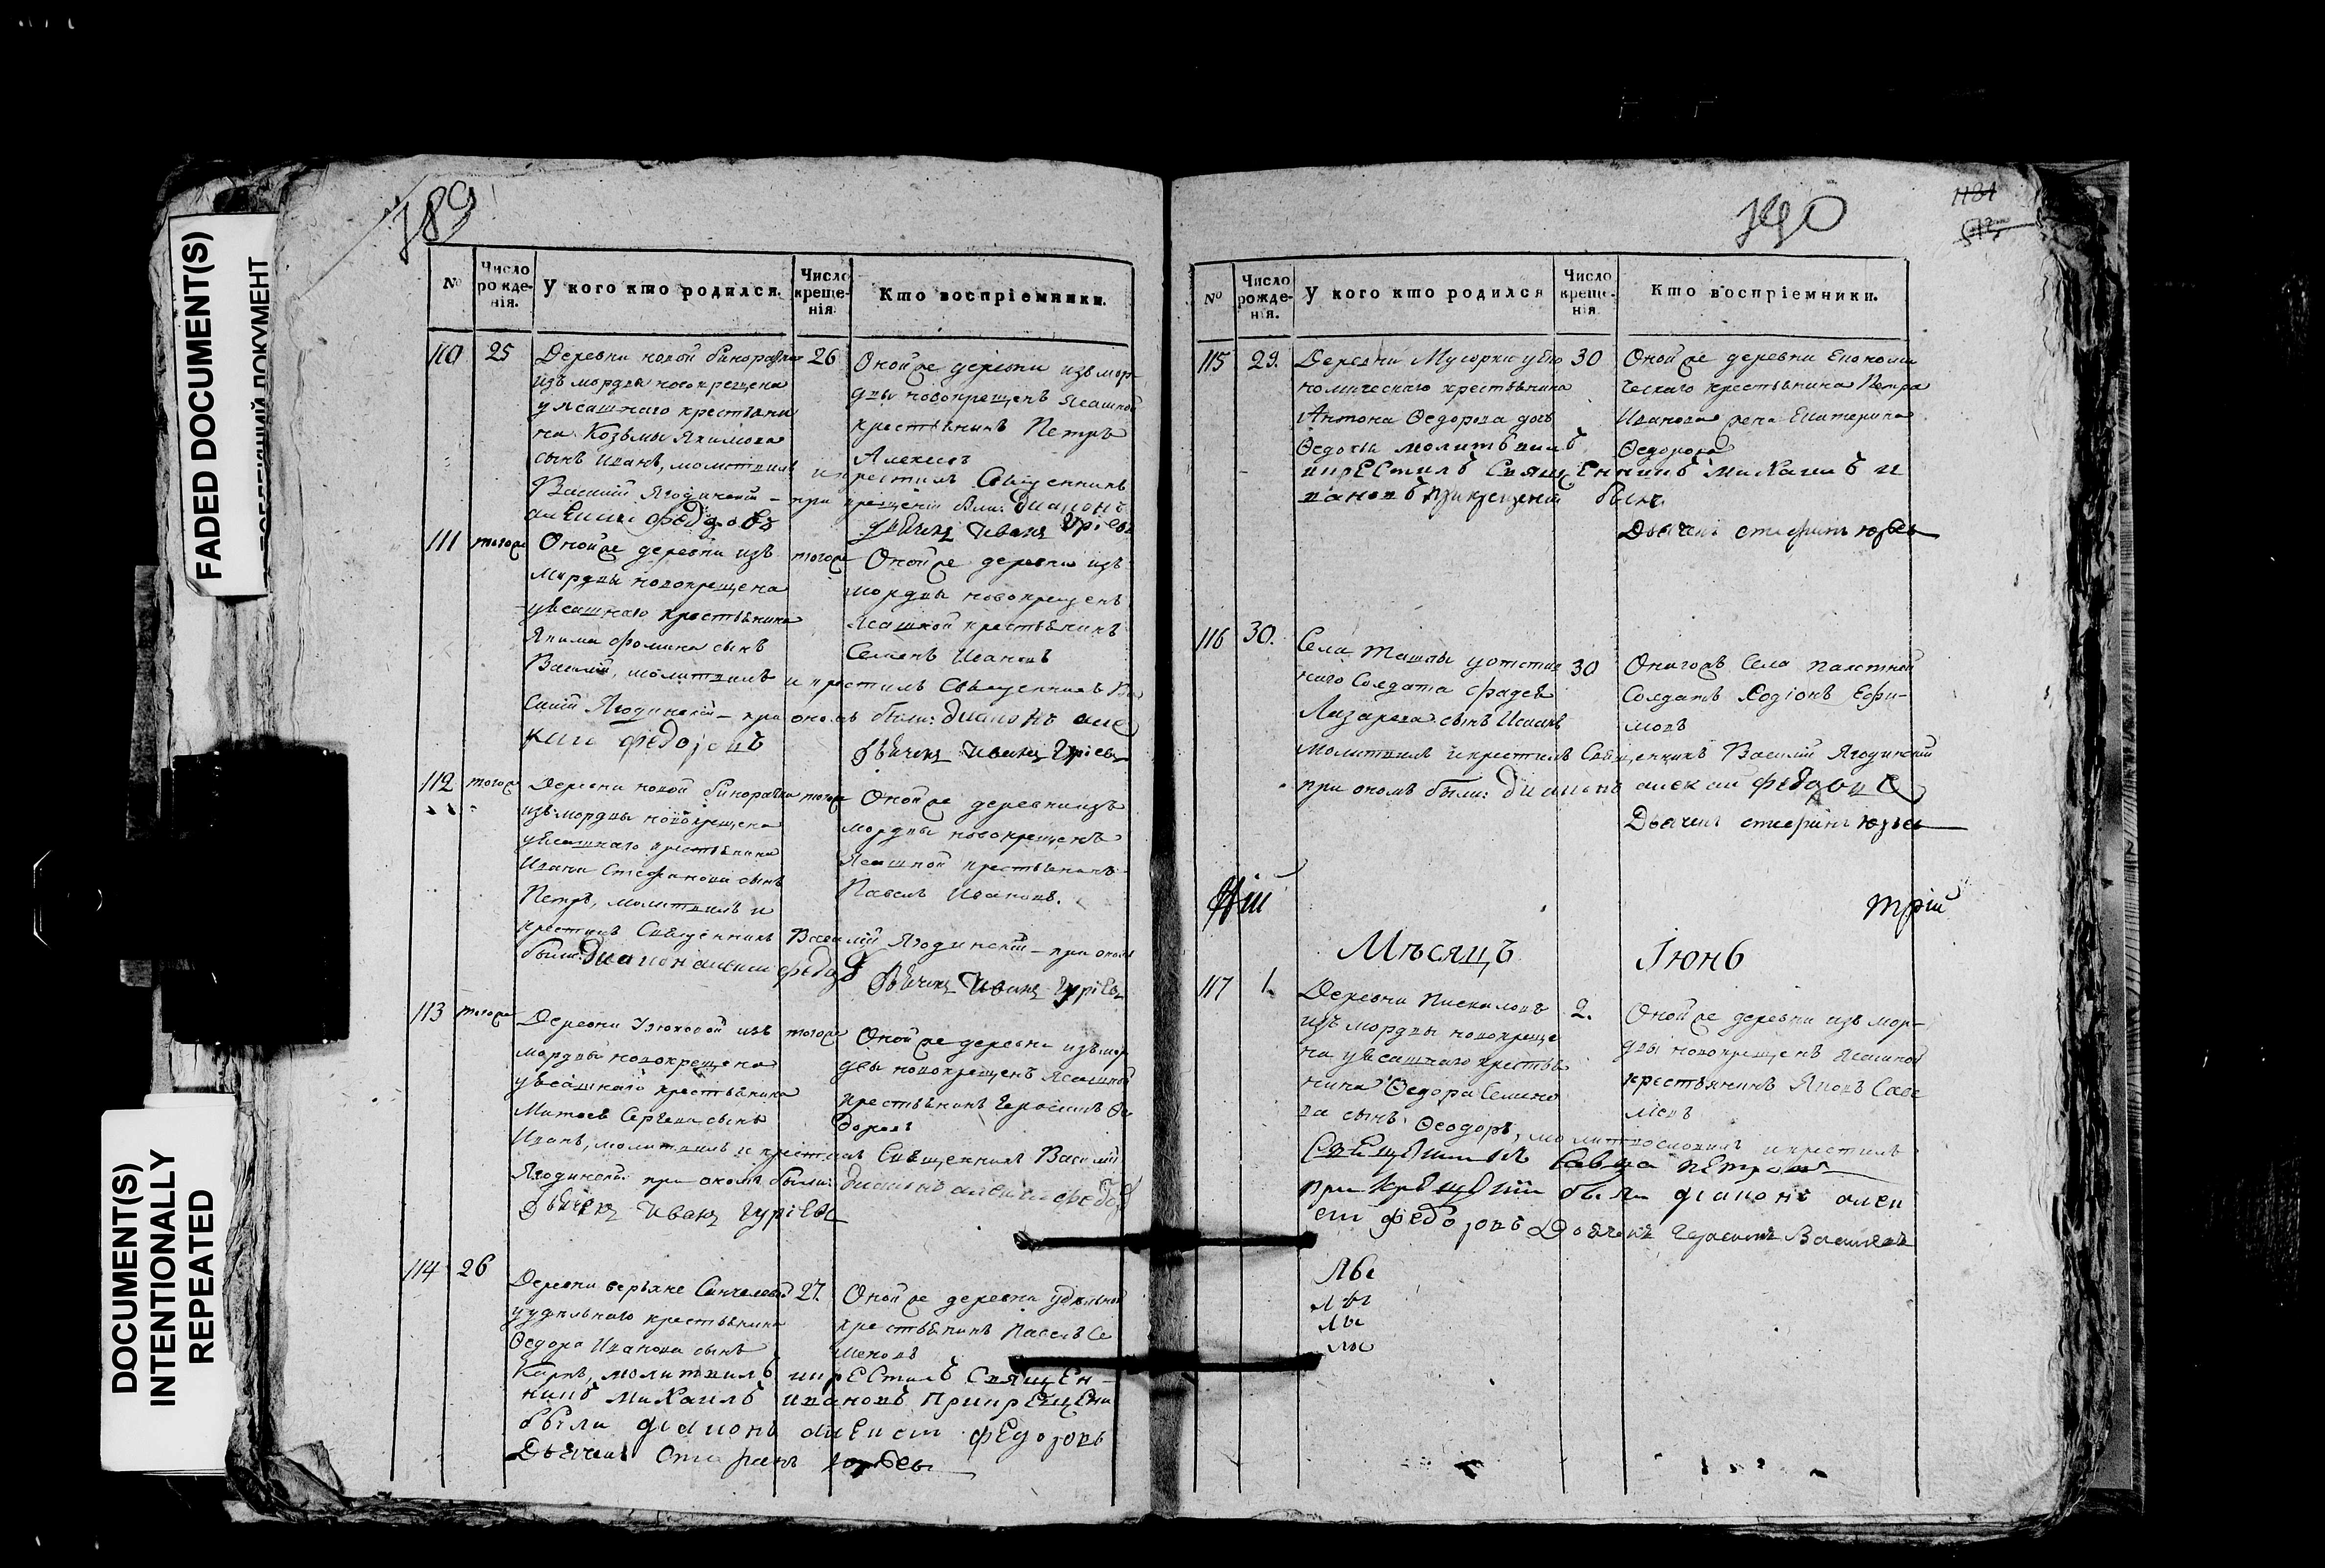 FADED DOCUMENT(S)
DOCUMENT(S)
INTENTIONALLY
REPEATED
789
№ Число рожде-нія. У кого кто родился. Число креще-нія. Кто воспріемники.
110 25 Деревни новой 26
изъ мордвы новокрещена
уясашнаго крестьяни
на Козьмы Якимова
сынъ Иванъ, молитвилъ и крестилъ Священникъ
Василій Ягодинской – при крещеніи были: диаконъ
алексии федоровъ
Оной же деревни изъ мор
двы новокрещенъ Ясашной
крестьянинъ Петръ
Алексеев
дьячекъ Иванъ Гуріевъ
111 тогоже Оной же деревни изъ тогоже
мордвы новокрещена
уясашнаго крестьянина
Якима Фомина сынъ
Василий, молитвилъ и крестилъ Священникъ Ва
силий Ягодинской – при ономъ были: диаконъ алек
федоровъ
Оной же деревни изъ
мордвы новокрещенъ
Ясашной крестьянинъ
Семенъ Ивановъ
дьячекъ Иванъ Гуріевъ
112 тогоже Деревни новой тогоже
изъ мордвы новокрещена
уясашнаго крестьянина
Ивана Стефанова сынъ
Петръ, молитвилъ и
крестилъ Священникъ Василий Ягодинской – при ономъ
были: диакон алексии федо
Оной же деревни изъ
мордвы новокрещенъ
Ясашной крестьянинъ
Павелъ Ивановъ.
дьячекъ Иванъ Гуріевъ
113 тогоже Деревни Узюковой изъ тогоже
мордвы новокрещена
уясашнаго крестьянина
Матвея Сергеева сынъ
Иванъ, молитвилъ и крестилъ Священникъ Василий
Ягодинской при ономъ были: диаконъ алексии федо
дьячекъ Иванъ Гуріевъ
Оной же деревни изъ мор
двы новокрещенъ Ясашной
крестьянинъ Герасимъ Ѳе
доров
114 26 Деревни верхне Санчелеевой 27.
уудельнаго крестьянина
Ѳедора Иванова сынъ
Карпъ, молитвилъ икрестилъ Священ-
никъ михаилъ ивановъ прикрещени
были диаконъ алексей федоровъ
Дьячекъ Стефанъ юрьев
Оной же деревни удельной
крестьянинъ Павелъ Се
меновъ
790
1181
№ Число рожде-нія. У кого кто родился Число креще-нія. Кто воспріемники.
115 29. Деревни Мусорки уЕко 30
номическаго крестьянина
Антона Ѳедорова дочь
Ѳедосья молитвилъ
икрестилъ Священникъ михаилъ и
вановъ прикрещении были
Оной же деревни Економи
ческаго крестьянина Петра
Иванова жена Екатерина
Ѳедорова
Дьячекъ стефанъ юрьев
116 30. Села Ташлы уотстав 30
наго Солдата Фадея
Лазарева сынъ Исаакъ
молитвилъ икрестилъ Священникъ Василий Ягодинской
при ономъ были: диаконъ алексаи федоровъ
Оногожъ Села пахотной
Солдатъ Родіонъ Ефи-
мовъ
Дьячекъ стефанъ юрьев
трій
Мѣсяцъ Іюнь
117 1. Деревни Пискаловъ 2.
изъ мордвы новокреще
на уясашнаго крестья
нина Ѳедора Семено
ва сынъ Ѳеодоръ, молитвословилъ икрестилъ
Священникъ Савва Петровъ
при крещении были диаконъ алек
сей федоровъ Дьячекъ Герасимъ Васильев
Оной же деревни изъ мор-
двы новокрещенъ Ясашной
крестьянинъ Яковъ Саве
лиев